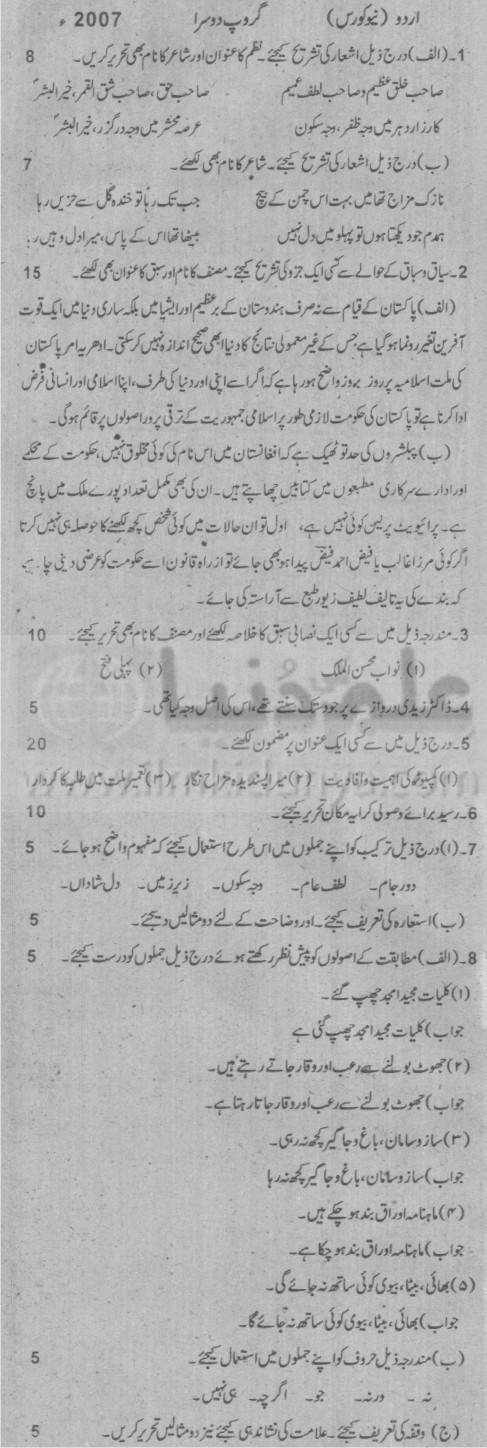 اردو (نیو کورس) گروپ دوسرا 2007ء
1۔ (الف) درج ذیل اشعار کی تشریح کیجئے۔ نظم کا عنوان اور شاعر کا نام بھی تحریر کریں۔ 8
صاحب خلق عظیم و صاحب لطف عمیم صاحب حق، صاحب شق القمر، خیر البشرؐ
کارزار دہر میں وجہ ظفر، وجہ سکون عرصہ محشر میں وجہ درگزر، خیر البشرؐ
(ب) درج ذیل اشعار کی تشریح کیجئے۔ شاعر کا نام بھی لکھئے۔ 7
نازک مزاج تھا میں بہت اس چمن کے بیچ جب تک رہا تو خندہ گل سے حزیں رہا
ہمدم جو دیکھتا ہوں تو پہلو میں دل نہیں بیٹھا تھا اس کے پاس، میرا دل وہیں رہا
2۔ سیاق و سباق کے حوالے سے کسی ایک جزو کی تشریح کیجئے۔ مصنف کا نام اور سبق کا عنوان بھی لکھئے۔ 15
(الف) پاکستان کے قیام سے نہ صرف ہندوستان کے برعظیم اور ایشیا میں بلکہ ساری دنیا میں ایک قوت
آفرین تغیر رونما ہو گیا ہے جس کے غیر معمولی نتائج کا دنیا ابھی صحیح اندازہ نہیں کر سکتی۔ ادھر یہ امر پاکستان
کی ملت اسلامیہ پر روز بروز واضح ہو رہا ہے کہ اگر اسے اپنی اور دنیا کی طرف، اپنا اسلامی اور انسانی فرض
ادا کرنا ہے تو پاکستان کی حکومت لازمی طور پر اسلامی جمہوریت کے ترقی پرور اصولوں پر قائم ہو گی۔
(ب) پبلشروں کی حد تو ٹھیک ہے کہ افغانستان میں اس نام کی کوئی مخلوق نہیں، حکومت کے محکمے
اور ادارے سرکاری مطبعوں میں کتابیں چھاپتے ہیں۔ ان کی بھی مکمل تعداد پورے ملک میں پانچ
ہے۔ پرائیویٹ پریس کوئی نہیں ہے، اول تو ان حالات میں کوئی شخص کچھ لکھنے کا حوصلہ ہی نہیں کرتا
اگر کوئی مرزا غالب یا فیض احمد فیض پیدا ہو بھی جائے تو از راہ قانون اسے حکومت کو عرضی دینی چاہیے
کہ بندے کی یہ تالیف لطیف زیور طبع سے آراستہ کی جائے۔
3۔ مندرجہ ذیل میں سے کسی ایک نصابی سبق کا خلاصہ لکھئے اور مصنف کا نام بھی تحریر کیجئے۔ 10
(۱) نواب محسن الملک (۲) پہلی فتح
4۔ ڈاکٹر زیدی دروازے پر جو دستک سنتے تھے، اس کی اصل وجہ کیا تھی۔ 5
5۔ درج ذیل میں سے کسی ایک عنوان پر مضمون لکھئے۔ 20
(۱) کمپیوٹر کی اہمیت و افادیت (۲) میرا پسندیدہ مزاح نگار (۳) تعمیر ملت میں طلبہ کا کردار
6۔ رسید برائے وصولی کرایہ مکان تحریر کیجئے۔ 10
7۔ (۱) درج ذیل ترکیب کو اپنے جملوں میں اس طرح استعمال کیجئے کہ مفہوم واضح ہو جائے۔ 5
دور جام۔ لطف عام۔ وجہ سکوں۔ زیر زمیں۔ دل شاداں۔
(ب) استعارہ کی تعریف کیجئے۔ اور وضاحت کے لئے دو مثالیں دیجئے۔ 5
8۔ (الف) مطابقت کے اصولوں کو پیش نظر رکھتے ہوئے درج ذیل جملوں کو درست کیجئے۔ 5
(۱) کلیات مجید امجد چھپ گئے۔
جواب) کلیات مجید امجد چھپ گئی ہے
(۲) جھوٹ بولنے سے رعب اور وقار جاتے رہتے ہیں۔
جواب) جھوٹ بولنے سے رعب اور وقار جاتا رہتا ہے۔
(۳) ساز و سامان، باغ و جاگیر کچھ نہ رہی۔
جواب) ساز و سامان، باغ و جاگیر کچھ نہ رہا
(۴) ماہنامہ اوراق بند ہو چکے ہیں۔
جواب) ماہنامہ اوراق بند ہو چکا ہے۔
(۵) بھائی، بیٹا، بیوی کوئی ساتھ نہ جائے گی۔
جواب) بھائی، بیٹا، بیوی کوئی ساتھ نہ جائے گا۔
(ب) مندرجہ ذیل حروف کو اپنے جملوں میں استعمال کیجئے۔ 5
نہ۔ ورنہ۔ جو۔ اگرچہ۔ ہی نہیں۔
(ج) وقفہ کی تعریف کیجئے۔ علامت کی نشاندہی کیجئے نیز دو مثالیں تحریر کریں۔ 5